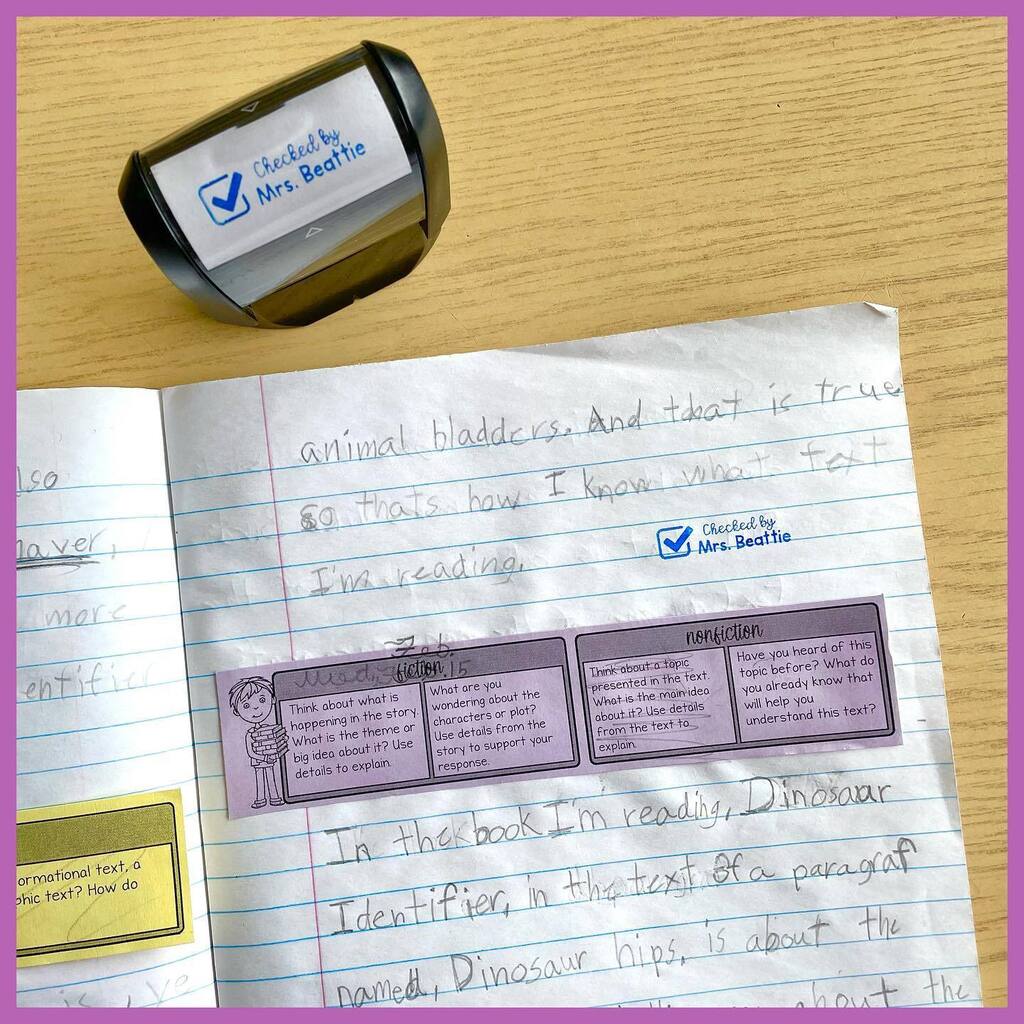 Checked by
Mrs. Beattie
lso
haver,
more
entifier
ormational text, a
phic text? How do
animal bladders. And that is true
so thats how I know what text
I'm reading.
Checked by
Mrs. Beattie
Feb.
Wed, 15
fiction
Think about what is
happening in the story.
What is the theme or
big idea about it? Use
details to explain.
What are you
wondering about the
characters or plot?
Use details from the
story to support your
response.
nonfiction
Think about a topic
presented in the text.
What is the main idea
about it? Use details
from the text to
explain.
Have you heard of this
topic before? What do
you already know that
will help you
understand this text?
In the book I'm reading, Dinosaur
Identifier, in the text of a paragraf
named, Dinosaur hips, is about the
about the